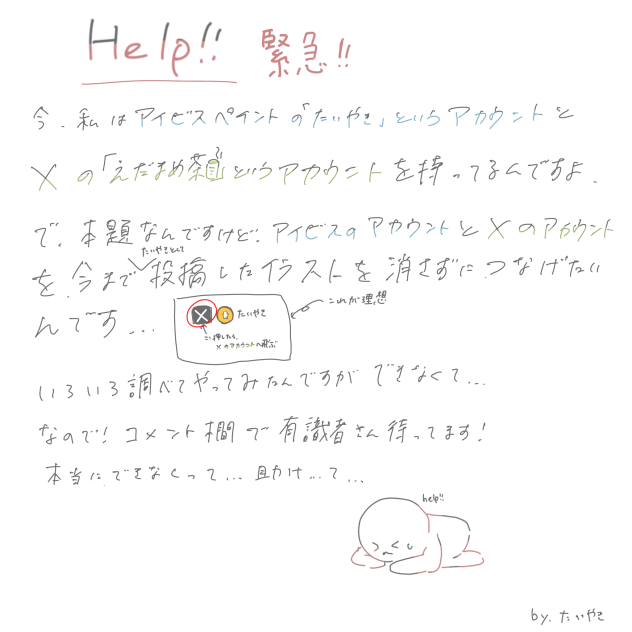 Help!! 緊急!!
今、私はアイビスペイントの「たいやき」というアカウントと
Xの「えだまめ茶」というアカウントを持ってるんですよ、
で、本題なんですけど、アイビスのアカウントとXのアカウント
たいやきとして
を、今まで投稿したイラストを消さずにつなげたい
んです...
X たいやき
ここ押したら、
Xのアカウントへ飛ぶ
これが理想
いろいろ調べてやってみたんですができなくて...
なので!コメント欄で有識者さん待ってます!
本当にできなくって...助け...て...
help!!
by. たいやき